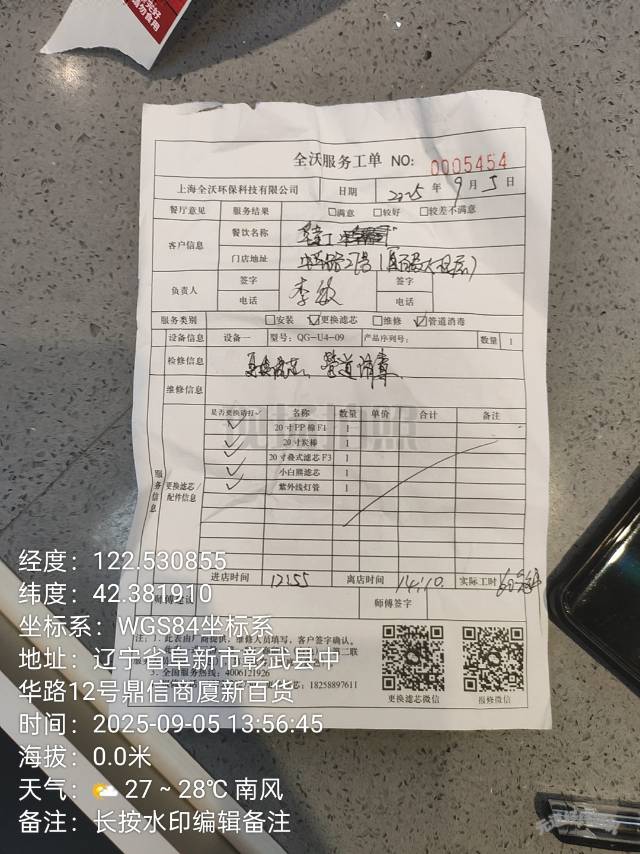 全沃服务工单 NO: 0005454
上海全沃环保科技有限公司 日期 2025 年 9 月 5 日
餐厅意见 服务结果 □满意 □较好 □较差不满意
客户信息 餐饮名称
门店地址
负责人 签字 李敏 签字
电话 电话
服务类别 □安装 ☑更换滤芯 □维修 ☑管道消毒
设备信息 设备一 型号: QG-U4-09 产品序列号: 数量 1
检修信息 更换滤芯、管道消毒
维修信息
服务信息 更换滤芯/配件信息
是否更换请打✓ 名称 数量 单价 合计 备注
✓ 20寸PP棉F1 1
✓ 20寸炭棒 1
✓ 20寸叠式滤芯F3 1
✓ 小白熊滤芯 1
✓ 紫外线灯管 1
进店时间 12:55 离店时间 14:10 实际工时
师傅建议 师傅签字
注: 1、此表由厂商提供, 维修人员填写, 客户签字确认。
二联
3、全国服务热线: 4006121926
: 18258897611
更换滤芯微信 报修微信
经度: 122.530855
纬度: 42.381910
坐标系: WGS84坐标系
地址: 辽宁省阜新市彰武县中
华路12号鼎信商厦新百货
时间: 2025-09-05 13:56:45
海拔: 0.0米
天气: 27 ~ 28℃ 南风
备注: 长按水印编辑备注